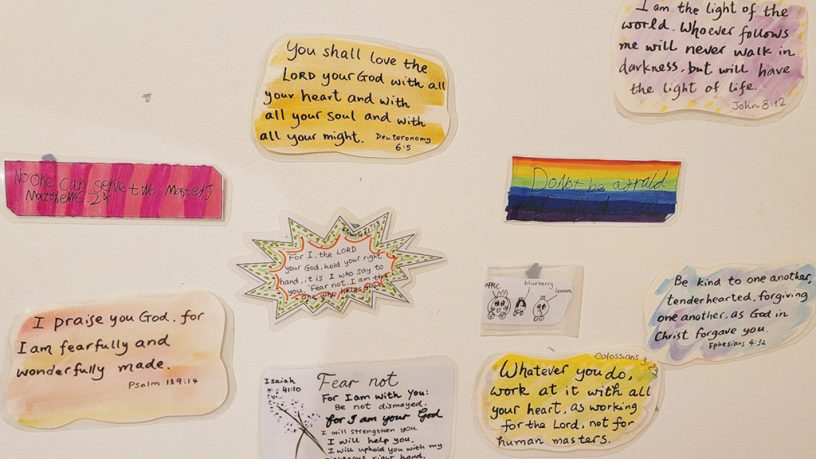 I am the light of the
world. Whoever follows
me will never walk in
darkness, but will have
the light of life.
John 8:12
You shall love the
LORD your God with all
your heart and with
all your soul and with
all your might. Deuteronomy
6:5
No one can serve two Masters
Matthew 6 24
Do not be afraid
For I, the LORD
your God, hold your right
hand, it is I who say to
you, Fear not, I am the
one who helps you
apple
blueberry
lemon
Be kind to one another,
tenderhearted, forgiving
one another, as God in
Christ forgave you.
Ephesians 4:32
I praise you God, for
I am fearfully and
wonderfully made.
Psalm 139:14
Izaiah
41:10
Fear not
For I am with you:
Be not dismayed.
for I am your God
I will strengthen you
I will help you,
I will uphold you with my
righteous right hand,
Colossians 3:23
Whatever you do,
work at it with all
your heart, as working
for the Lord, not for
human masters.